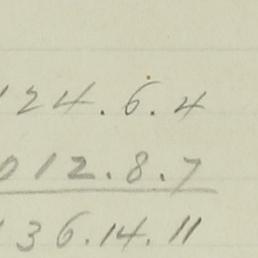 124.6.4
012.8.7
136.14.11